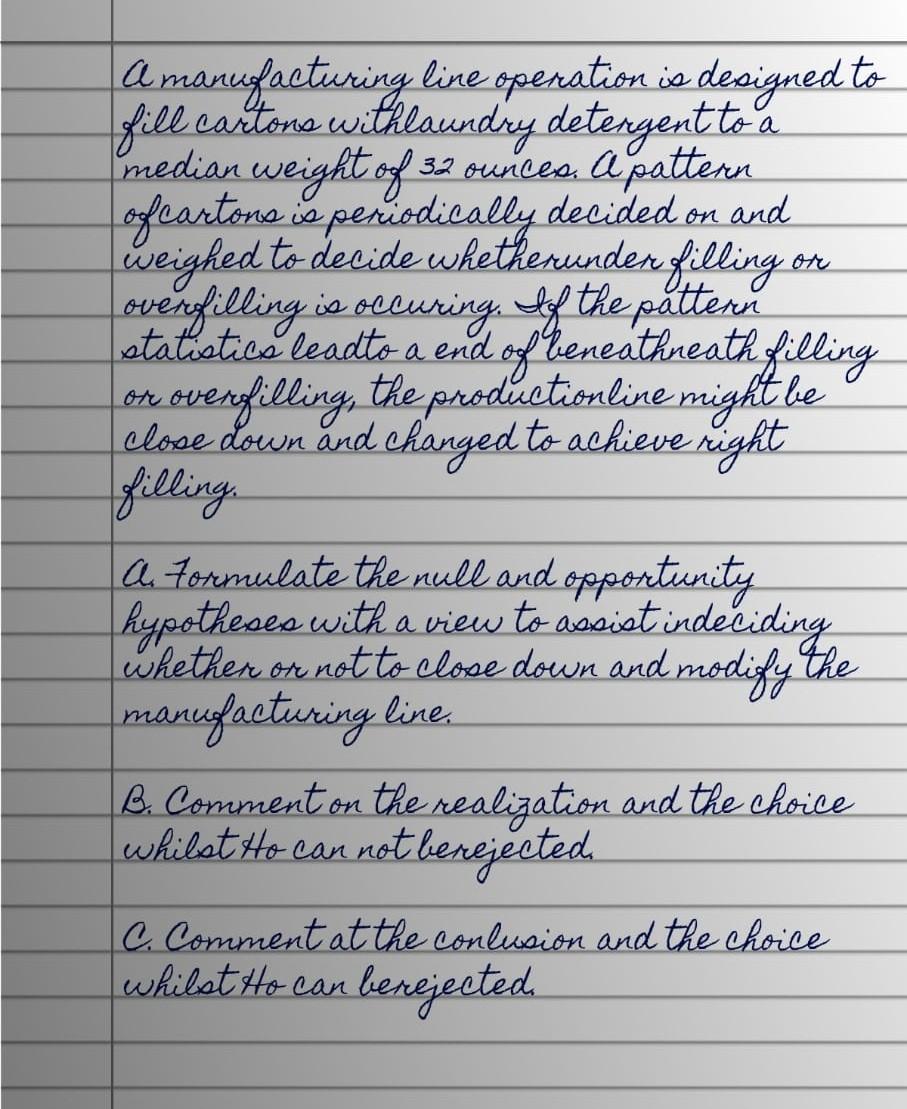 A manufacturing line operation is designed to
fill cartons withlaundry detergent to a
median weight of 32 ounces. A pattern
ofcartons is periodically decided on and
weighed to decide whetherunder filling or
overfilling is occuring. If the pattern
statistics leadto a end of beneathneath filling
or overfilling, the productionline might be
close down and changed to achieve right
filling.
A. Formulate the null and opportunity
hypotheses with a view to assist indeciding
whether or not to close down and modify the
manufacturing line.
B. Comment on the realization and the choice
whilst Ho can not berejected.
C. Comment at the conlusion and the choice
whilst Ho can berejected.